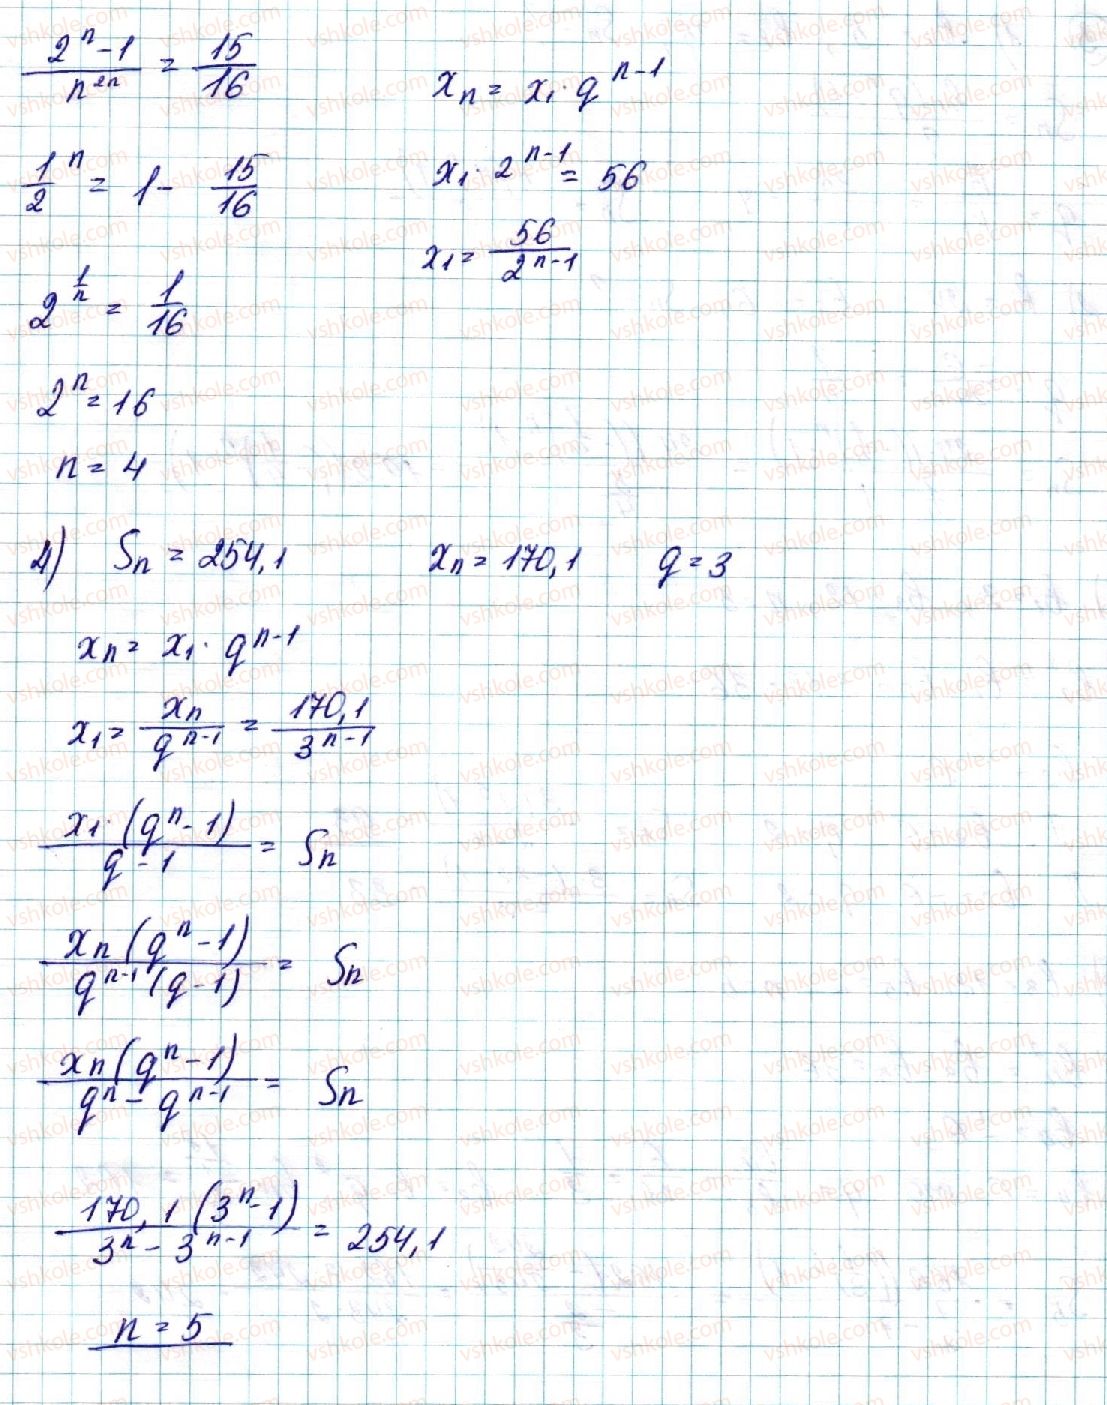 (2^n - 1)/n^(2n) = 15/16
x_n = x_1 · q^(n-1)
1/2^n = 1 - 15/16
x_1 · 2^(n-1) = 56
x_1 = 56/2^(n-1)
2^(1/n) = 1/16
2^n = 16
n = 4
4) S_n = 254,1 x_n = 170,1 q = 3
x_n = x_1 · q^(n-1)
x_1 = x_n/q^(n-1) = 170,1/3^(n-1)
x_1 · (q^n - 1)/(q - 1) = S_n
x_n (q^n - 1)/(q^(n-1) (q - 1)) = S_n
x_n (q^n - 1)/(q^n - q^(n-1)) = S_n
170,1 (3^n - 1)/(3^n - 3^(n-1)) = 254,1
n = 5
vshkole.com